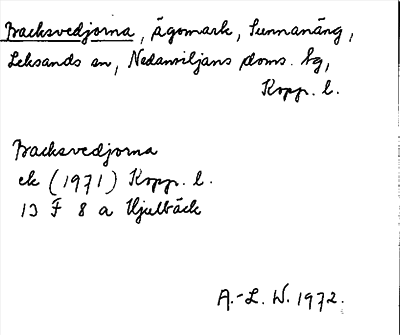 Backsvedjorna, ägomark, Sunnanäng,
Leksands sn, Nedansiljans doms. hg,
Kopp. l.
Backsvedjorna
ek (1971) Kopp. l.
13 F 8 a Hjulbäck
A.-L. W. 1972.